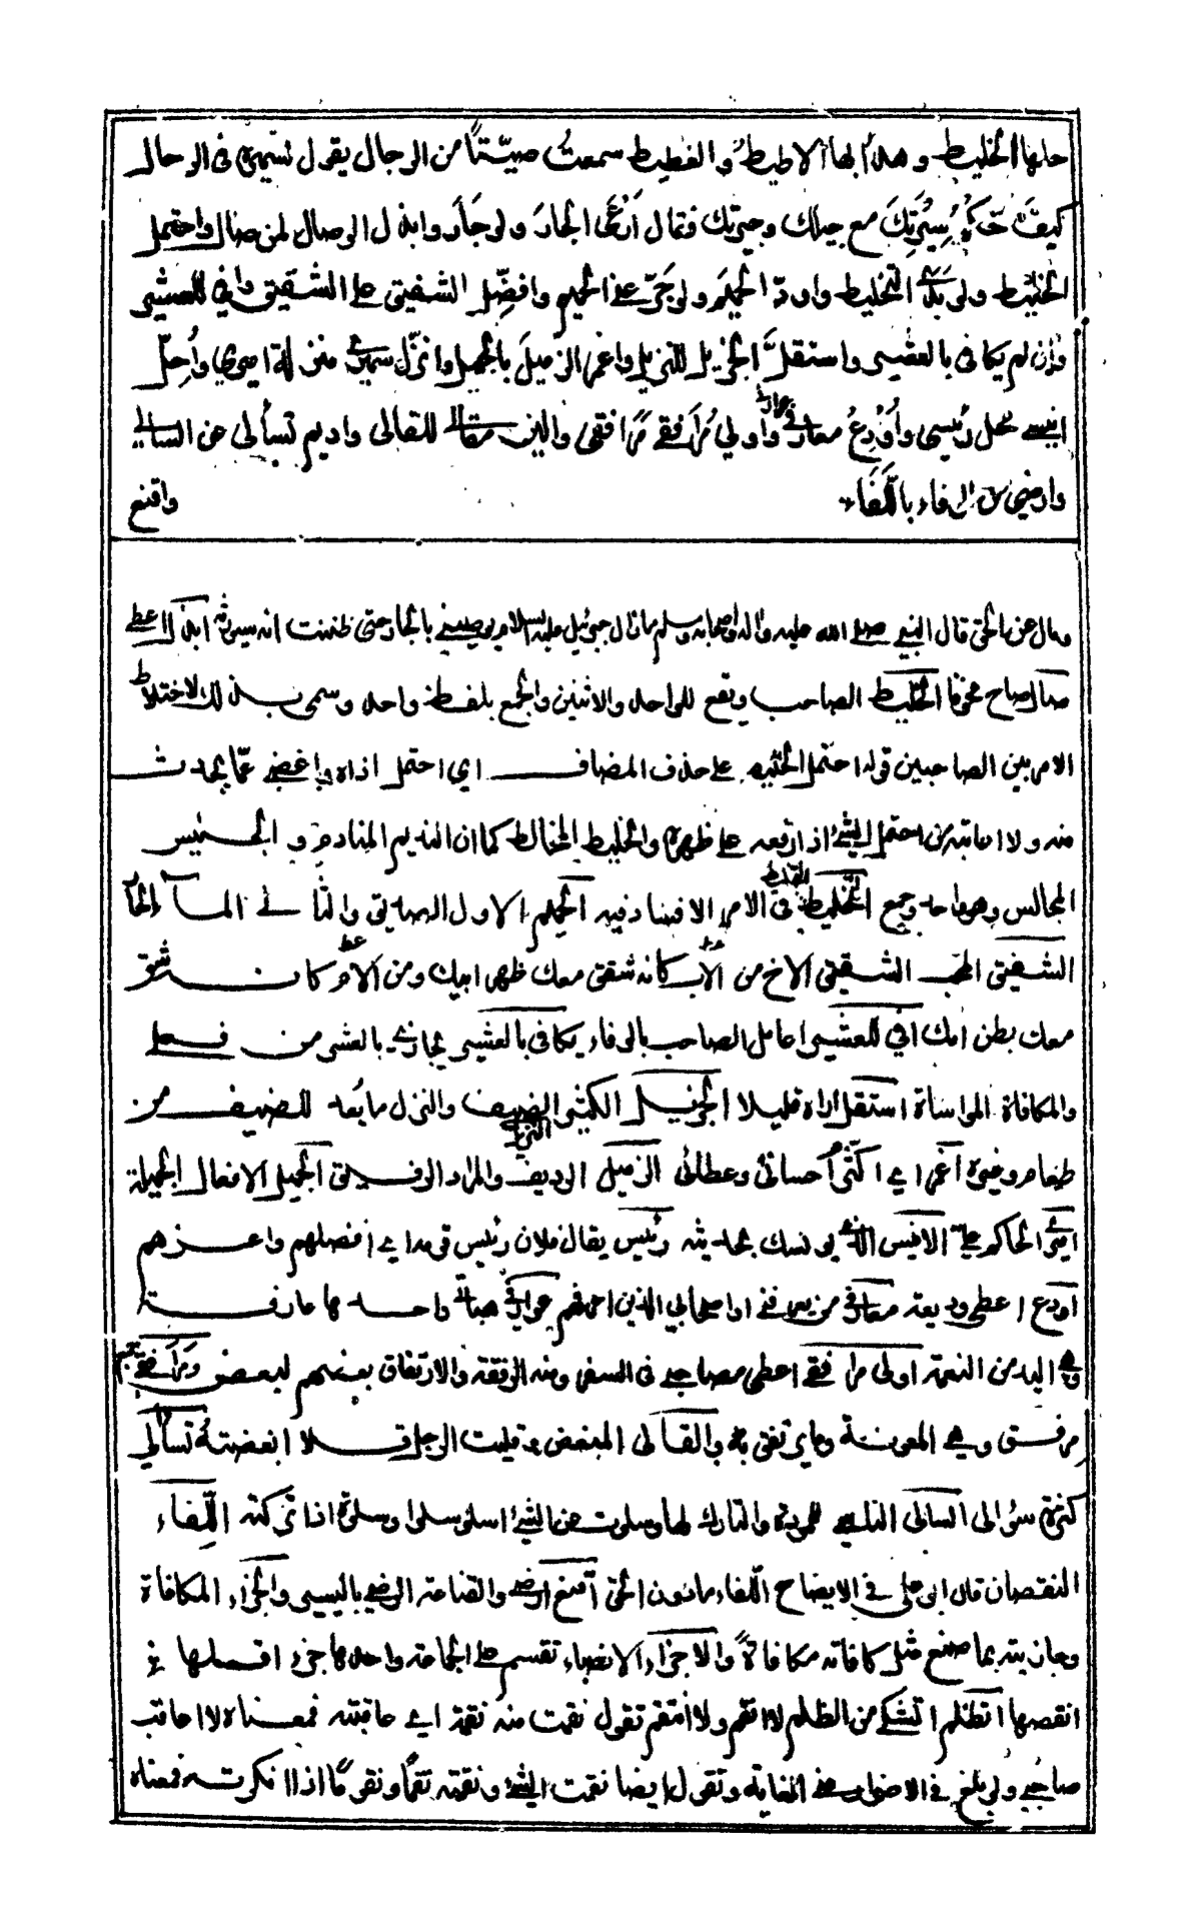 حلها الخليط وهدأ بها الاطيط والغطيط سمعت صيّتًا من الرجال يقول لسميره في الرحال
كيف حكم سيرتك مع جيلك وجيرتك فقال أرعى الجار ولو جار وابذل الوصال لمن صال واحتمل
الخليط ولو ابدى التخليط واودّ الحميم ولو جرّعني الحميم وافضّل الشفيق على الشقيق وافي للعشير
وان لم يكافي بالعشير واستقلّ الجزيل للنزيل واغمر الزميل بالجميل وانزّل سميري منزلة اميري واُحلّ
انيسي محل رئيسي واُودع معارفي عوارفي واولي مُرافقي مَرافقي والين مقالي للقالي واديم تسألي عن السالي
وارضى من الوفاء باللَّفَاء
واقنع
ومال عن الحق قال النبي صلى الله عليه واله واصحابه وسلم ما زال جبرئيل عليه السلام يوصيني بالجار حتى ظننت انه سيورثه ابذل اعطي
صال صاح مخوفا الخليط الصاحب ويقع للواحد والاثنين والجمع بلفظ واحد وسمي بذلك لاختلاط
الامر بين الصاحبين قوله احتمل الخليط على حذف المضاف اي احتمل اذاه واغضي عمّا يحدث
منه ولا اعاتبه من احتمل الشيئ اذا رفعه على ظهره والخليط المخالط كما ان النديم المنادم والجليس
المجالس وهو واحد وجمع التخليط في الامر الافساد فيه الحميم الاول الصديق والثاني الماء الحار
الشفيق المحب الشقيق الاخ من الاب كانه شق معك ظهر ابيك ومن الام كانه شق
معك بطن امك افي للعشير اعامل الصاحب بالوفاء يكافي بالعشير يجازي بالعشر من فعلي
والمكافاة المواساة استقل اراه قليلا الجزيل الكثير النزيل الضيف والنزل ما يُعد للضيف من
طعام وغيره اغمر اي اكثر احساني وعطائي الزميل الرديف والمراد الرفيق الجميل الافعال الجميلة
اميري الحاكم علي الانيس الذي يونسك بحديثه رئيس يقال فلان رئيس قومه اي افضلهم واعزهم
اودع اعطي وديعة معارفي من يعرفني او اصحابي الذين اعرفهم عوارفي هباتي واحدها عارفة
وهي اليد من النعمة اولي مرافقي اعطي مصاحبي في السفر ومنه الرفقة والارتفاق بعضهم لبعض ومَرافقي جمع
مرفق وهي المعونة وما يرتفق به والقالي المبغض وقليت الرجل قلا ابغضته تسألي
كثرة سؤالي السالي الناسي للمودة والتارك لها وسلوت عن الشيئ اسلو سلوا وسلوة اذا تركته اللَّفاء
النقصان قال ابو علي في الايضاح اللفاء ما دون الحق اقنع ارضى والقناعة الرضى باليسير والجزاء المكافاة
وجازيته بما صنع مثل كافاته مكافاةً والاجزاء الانصباء تقسم على الجماعة واحدها جزء اقلها
انقصها اتظلم اتشكى من الظلم لا انقم ولا انتقم تقول نقمت منه نقمة اي عاقبته فمعناه لا اعاقب
صاحبي ولو بلغ في الاضرار بي الغاية وتقول ايضا نقمت الشيئ ونقمته نقمًا ونقومًا اذا انكرته فمعناه